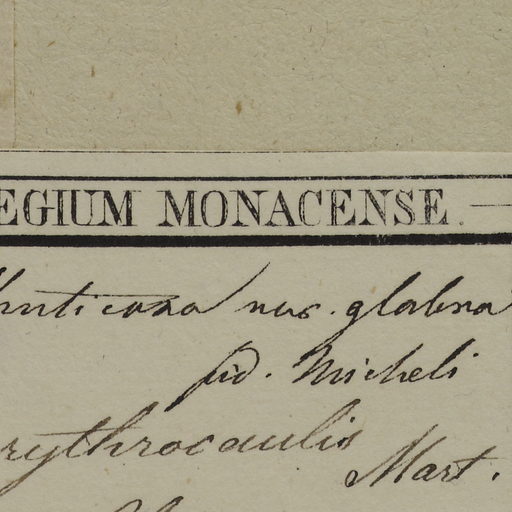 EGIUM MONACENSE.
var. glabra
fid. Micheli
rythrocaulis
Mart.